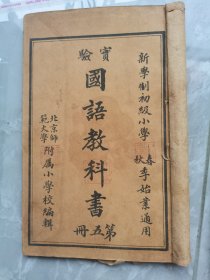 新學制初級小學 春秋季始業適用
實驗
國語教科書
第五冊
北京師範大學附屬小學校編輯